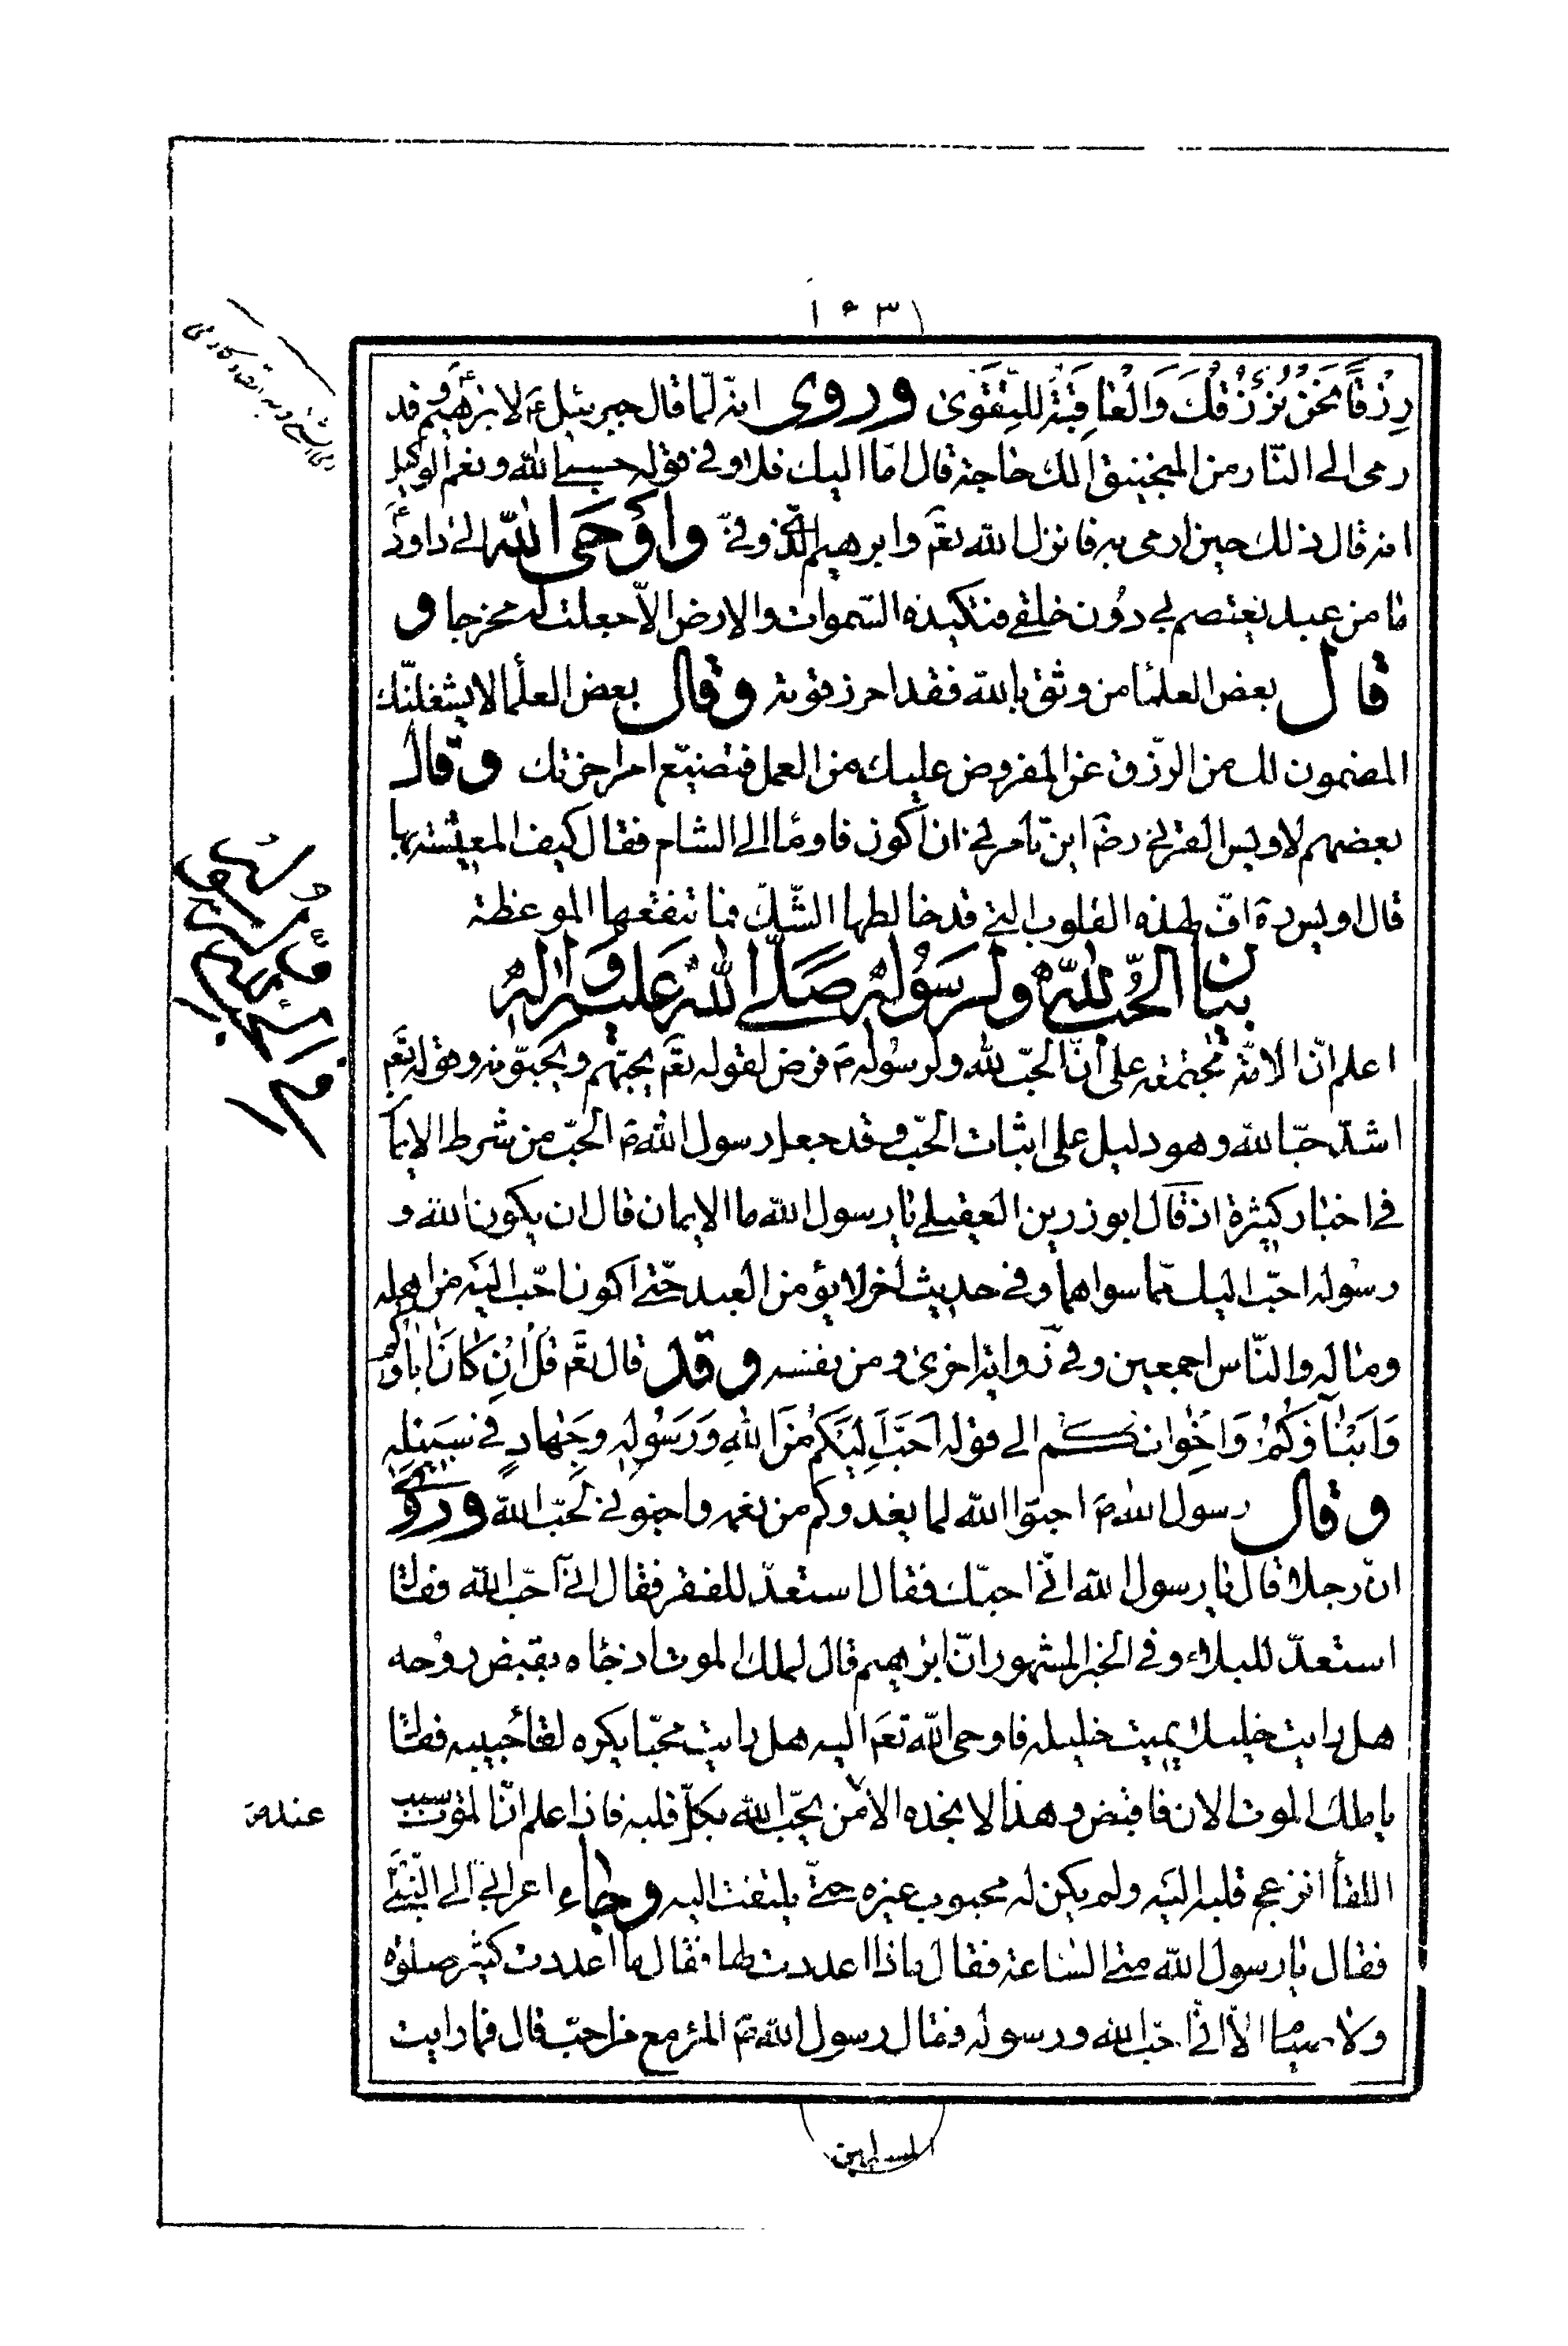 رِزْقًا نَحْنُ نَرْزُقُكَ وَالْعٰاقِبَةُ لِلتَّقْوىٰ وروى انه لمّا قال جبرئيل ع لابرٰهيم وقد
رمى الى النّار من المنجنيق الك حٰاجة قال امّا اليك فلا وفى بقوله حسبى الله ونعم الوكيل
انه قال ذلك حين ارمى به فانزل الله تعَم وابرهيم الّذى وفّىٰ واَوْحَى اللّه الىٰ داود
مٰا من عبد يعتصم بى دوُن خلقى فتكيده السّموات والارض الاّ جعلت له مخرجا و
قال بعض العلمٰا من وثق بالله فقد احرز قوته وقال بعض العلمٰا لا يشغلنّك
المضمون لك من الرّزق عن المفروض عليك من العمل فتضيّع امر اخرتك وقال
بعضهم لاويس القرنى رضَ اين تأمرنى ان اكون فاومٰا الى الشام فقال كيف المعيشة بها
قال اويس ره افّ لهذه القلوب التى قد خالطها الشّكّ فمٰا تنفعها الموعظة
بيٰان الحُبّ للّٰه ولرسُوله صَلّى اللّٰه عَليه وَاٰله
اعلم انّ الامّة مجتمعه على أنّ الحبّ لله ولرسُوله ص فرض لقوله تعَم يحبّهم ويحبّونه وقوله تعَم
اشدّ حبّا لله وهو دليل على اثبات الحبّ وقد جعل رسول الله ص الحبّ من شرط الايمٰا
فى اخبٰار كثيرة اذ قال ابوزرين العقيلى يٰا رسول الله ما الايمان قال ان يكون الله و
رسُوله احبّ اليك ممّا سواهما وفى حديث اٰخر لا يؤمن العبد حتّى اكون احبّ اليَه من اهله
ومٰاله والنّاس اجمعين وفى رَوايَة اخرىٰ ومن نفسه وقد قال تعَم قُلْ اِنْ كٰانَ اٰبٰاؤُكُمْ
وَاَبْنٰآؤُكُمْ وَاِخْوٰانُكُم الى قوله اَحَبَّ اِلَيْكُمْ مِنَ اللهِ وَرَسُولِهِ وَجِهٰادٍ فى سَبيٖلِهِ
وقال رسول الله ص احبّوا الله لما يغدوكم من نعمه واحبّونى لحبّ الله وروى
انّ رجلا قال يٰا رسول الله انّى احبّك فقال استعدّ للفقر فقال انّى احبّ الله فقٰال
استعدّ للبلاء وفى الخبر المشهور انّ ابرٰهيم قال لملك الموت اذ جٰاه بقبض روُحه
هل رايت خليلا يميت خليله فاوحى اللّه تعَم اليه هل رايت محبّا يكره لقٰأ حبيبه فقٰال
يا ملك الموت الان فاقبض وهذٰا لا يجده الاّ من يحبّ الله بكلّ قلبه فاذا علم انّ الموت سبب
اللقٰأ انزعج قلبه اليَه ولم يكن له محبوب غيره حتّى يلتفت اليه وجٰاء اعرابىّ الى النّبىّ
فقال يٰا رسول الله متى السّاعة فقال مٰاذا اعددت لها فقال مٰا اعددت كثير صلوٰة
ولا صيٰاما الاّ انّى احبّ الله ورسوله فقال رسول الله ص المرء مع من احبّ قال فما رايت
عنده
المسلمين